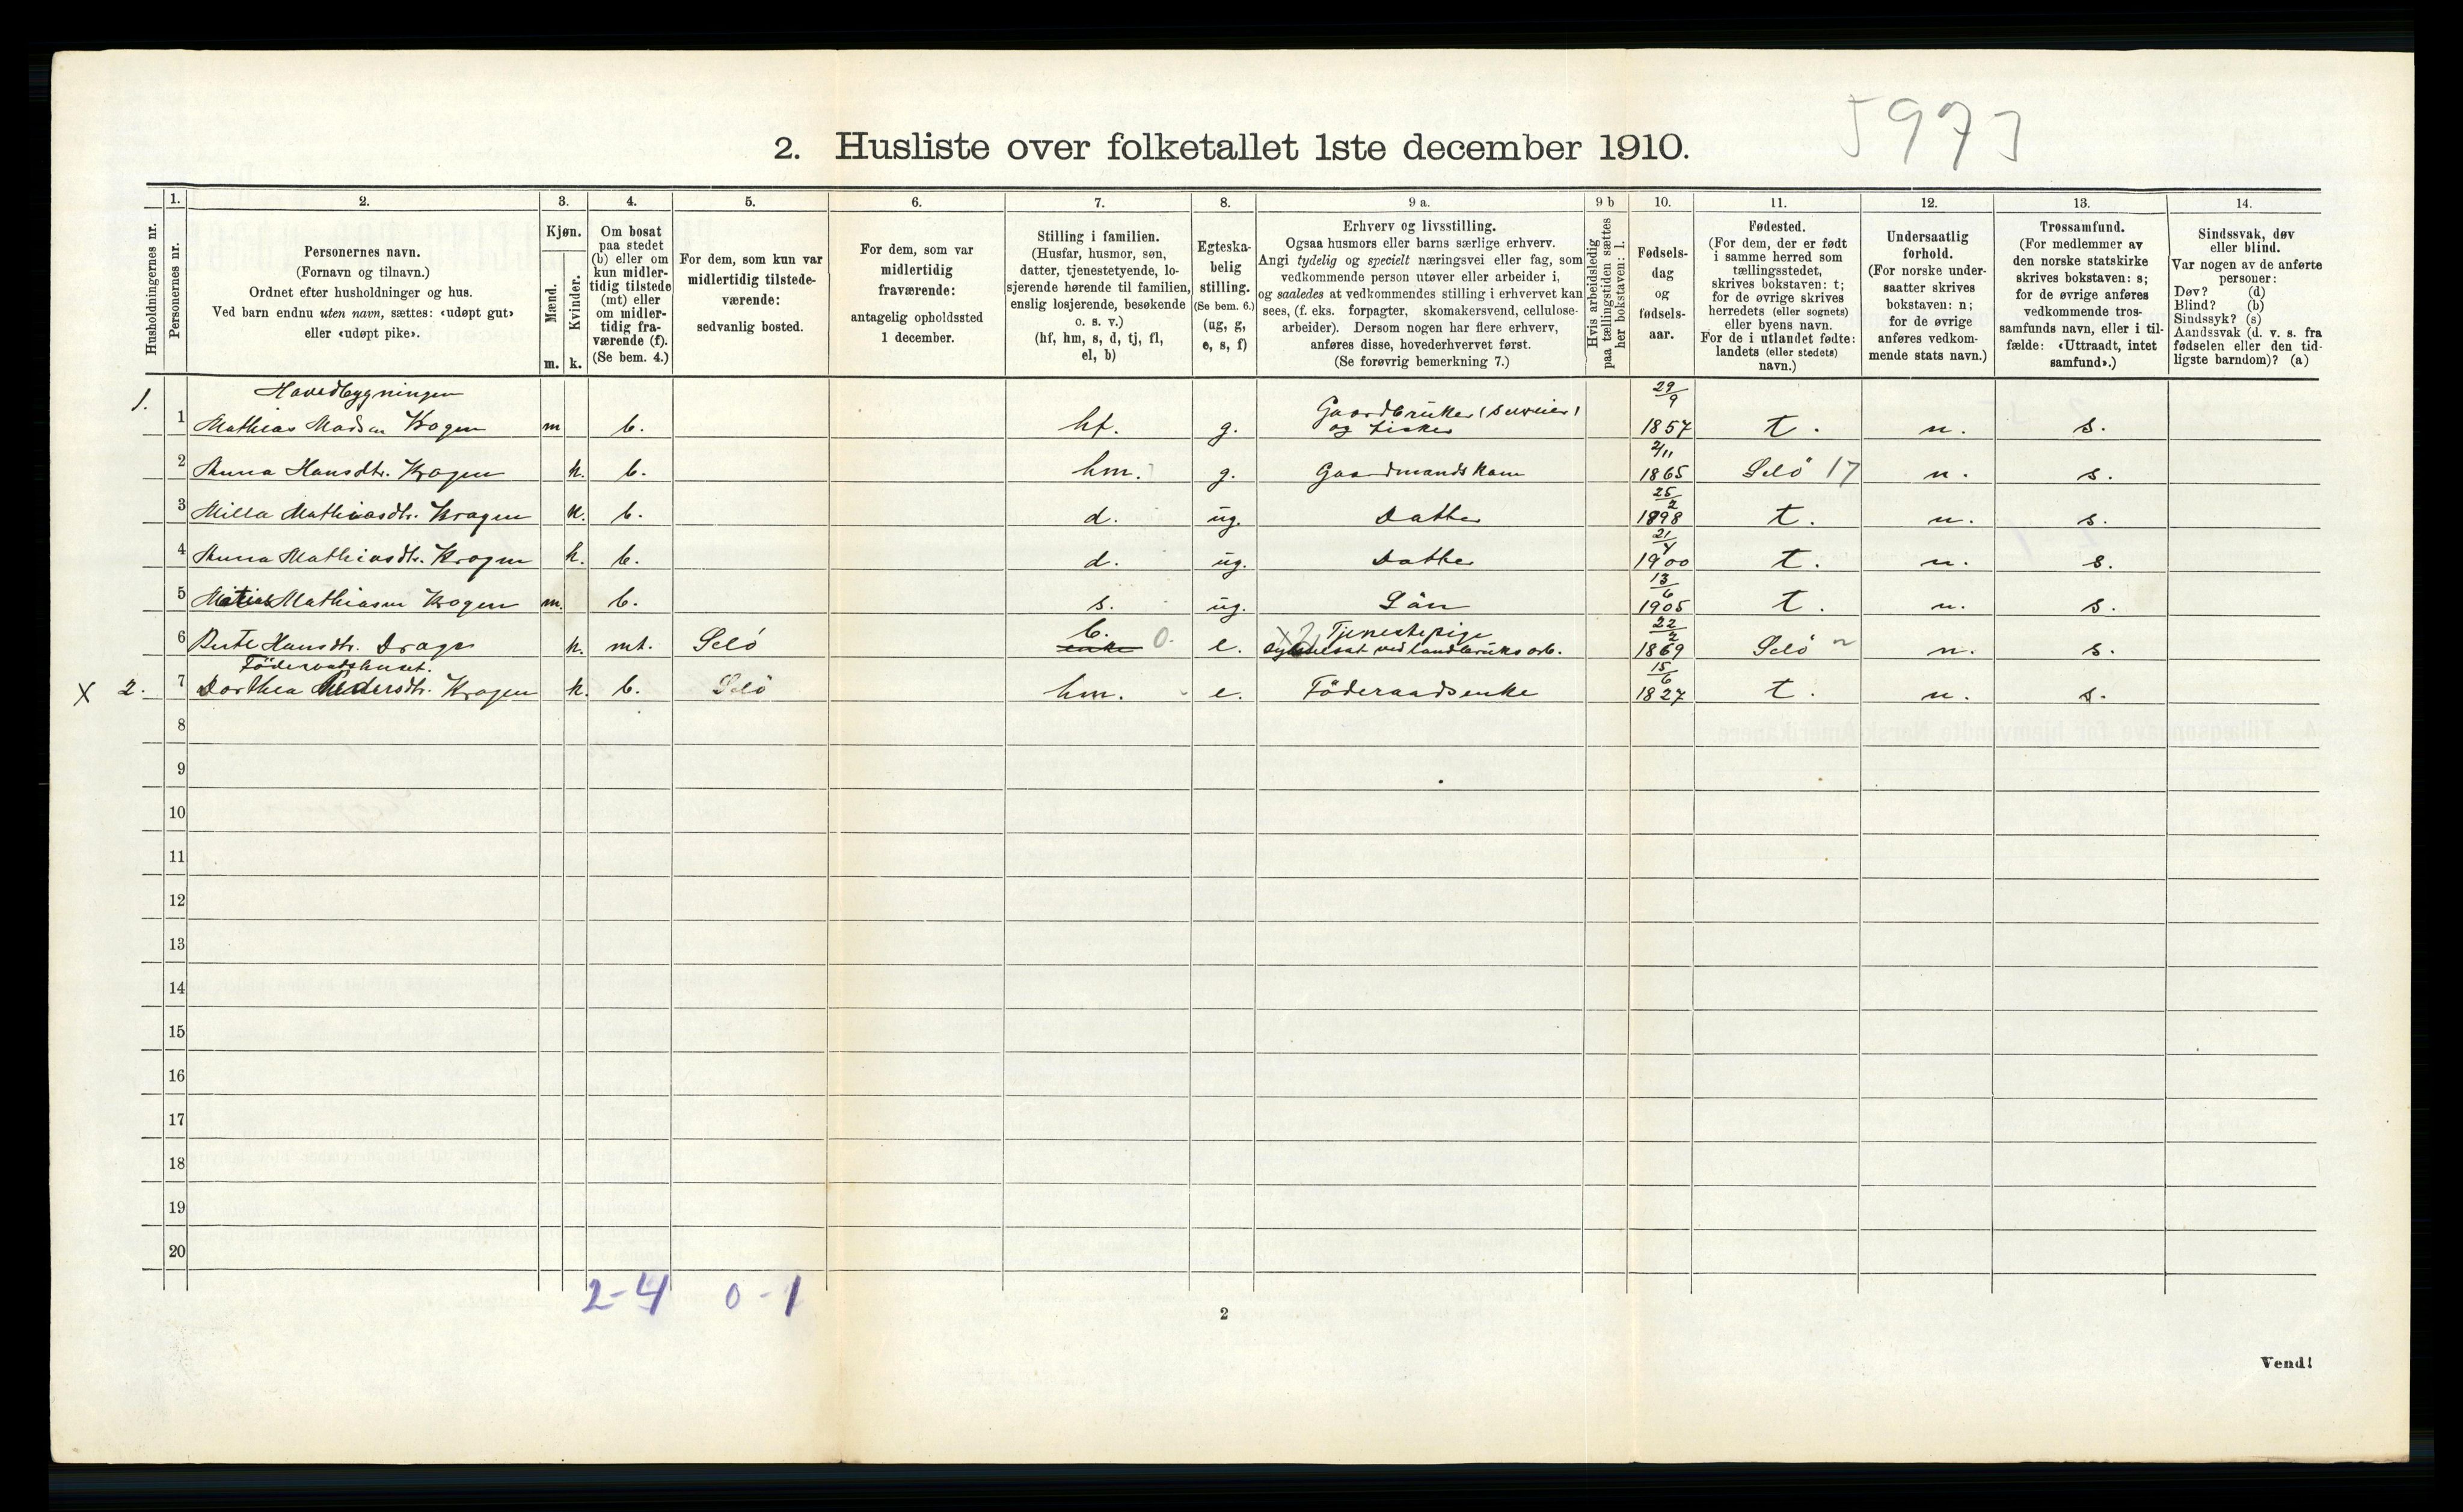 5973
2. Husliste over folketallet 1ste december 1910.
Husholdningernes nr.
1.
Personernes nr.
2.
Personernes navn.
(Fornavn og tilnavn.)
Ordnet efter husholdninger og hus.
Ved barn endnu uten navn, sættes: «udøpt gut»
eller «udøpt pike».
3.
Kjøn.
Mænd.
Kvinder.
m. k.
4.
Om bosat
paa stedet
(b) eller om
kun midler-
tidig tilstede
(mt) eller
om midler-
tidig fra-
værende (f).
(Se bem. 4.)
5.
For dem, som kun var
midlertidig tilstede-
værende:
sedvanlig bosted.
6.
For dem, som var
midlertidig
fraværende:
antagelig opholdssted
1 december.
7.
Stilling i familien.
(Husfar, husmor, søn,
datter, tjenestetyende, lo-
sjerende hørende til familien,
enslig losjerende, besøkende
o. s. v.)
(hf, hm, s, d, tj, fl,
el, b)
8.
Egteska-
belig
stilling.
(Se bem. 6.)
(ug, g,
e, s, f)
9 a.
Erhverv og livsstilling.
Ogsaa husmors eller barns særlige erhverv.
Angi tydelig og specielt næringsvei eller fag, som
vedkommende person utøver eller arbeider i,
og saaledes at vedkommendes stilling i erhvervet kan
sees, (f. eks. forpagter, skomakersvend, cellulose-
arbeider). Dersom nogen har flere erhverv,
anføres disse, hovederhvervet først.
(Se forøvrig bemerkning 7.)
9 b
Hvis arbeidsledig
paa tællingstiden sættes
her bokstaven: l.
10.
Fødsels-
dag
og
fødsels-
aar.
11.
Fødested.
(For dem, der er født
i samme herred som
tællingsstedet,
skrives bokstaven: t;
for de øvrige skrives
herredets (eller sognets)
eller byens navn.
For de i utlandet fødte:
landets (eller stedets)
navn.)
12.
Undersaatlig
forhold.
(For norske under-
saatter skrives
bokstaven: n;
for de øvrige
anføres vedkom-
mende stats navn.)
13.
Trossamfund.
(For medlemmer av
den norske statskirke
skrives bokstaven: s;
for de øvrige anføres
vedkommende tros-
samfunds navn, eller i til-
fælde: «Uttraadt, intet
samfund».)
14.
Sindssvak, døv
eller blind.
Var nogen av de anførte
personer:
Døv? (d)
Blind? (b)
Sindssyk? (s)
Aandssvak (d. v. s. fra
fødselen eller den tid-
ligste barndom)? (a)
Hovedbygningen
1. 1 Mathias Madsen Kragen m b. hf. g. Gaardbruker (selveier) og fisker 29/9 1857 t. n. s.
2 Anna Hansdtr. Kragen k. b. hm. g. Gaardmandskone 2/11 1865 Selö 17 n. s.
3 Milla Mathiasdtr. Kragen k. b. d. ug. Datter 25/2 1898 t. n. s.
4 Anna Mathiasdtr. Kragen k. b. d. ug. Datter 21/4 1900 t. n. s.
5 Matias Mathiasen Kragen m. b. s. ug. Sön 13/6 1905 t. n. s.
6 Berte Hansdtr. Drage k. mt. Selö b. enke 0. e. Tjenestepige sysselsat ved landbruksarb. 22/2 1869 Selö n. s.
Föderaadshuset.
x 2. 7 Dorthea Pedersdtr. Kragen k. b. Selö hm. - e. Föderaadsenke 15/6 1827 t. n. s.
8
9
10
11
12
13
14
15
16
17
18
19
20
2-4 0-1
2
Vend!